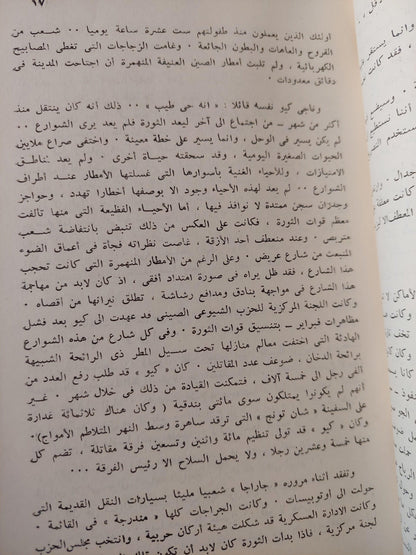 ١٧
اولئك الذين يعملون منذ طفولتهم ست عشرة ساعة يوميا .. شعب من
القروح والعاهات والبطون الجائعة . وغامت الزجاجات التى تغطى المصابيح
الكهربائية ، ولم تلبث أمطار الصين العنيفة المنهمرة أن اجتاحت المدينة فى
دقائق معدودات .
وناجى كيو نفسه قائلا : « انه حى طيب » .. ذلك أنه كان ينتقل منذ
أكثر من شهر ــ من اجتماع الى آخر ليعد الثورة فلم يعد يرى الشوارع ..
لم يكن يسير فى الوحل ، وانما يسير على خطة معينة . واختفى صراع ملايين
الحيوات الصغيرة اليومية ، وقد سحقته حياة أخرى . ولم يعد لمناطق
الامتيازات ، وللأحياء الغنية بأسوارها التى غسلتها الأمطار عند أطراف
الشوارع .. لم يعد لهذه الأحياء وجود الا بوصفها أخطارا تهدد ، وحواجز
وجدران سجن ممتدة لا نوافذ فيها ، أما الأحياء الفظيعة التى منها تتألفت
معظم قوات الثورة ، فكانت على العكس من ذلك تنبض بانتفاضة شعب
متربص . وعند منعطف أحد الأزقة ، غاصت نظراته فجأة فى أعماق الضوء
المنبعث من شارع عريض . وعلى الرغم من الأمطار المنهمرة التى كانت تحجب
هذا الشارع ، فقد ظل يراه فى صورة امتداد أفقى ، اذ كان لابد من مهاجمة
هذا الشارع فى مواجهة بنادق ومدافع رشاشة ، تطلق نيرانها من أقصاه .
وكانت اللجنة المركزية للحزب الشيوعى الصينى قد عهدت الى كيو بعد فشل
مظاهرات فبراير ــ بتنسيق قوات الثورة . وفى كل شارع من هذه الشوارع
الهادئة التى اختفت معالم منازلها تحت سيل المطر ذى الرائحة الشبيهة
برائحة الدخان ، ضوعف عدد المقاتلين . كان « كيو » قد طلب رفع العدد من
ألفى رجل الى خمسة آلاف ، فتمكنت القيادة من ذلك فى خلال شهر . غير
أنهم لم يكونوا يمتلكون سوى مائتى بندقية ( وكان هناك ثلاثمائة غدارة
على السفينة « شان تونج » التى ترقد ساهرة وسط النهر المتلاطم الأمواج).
وكان « كيو » قد تولى تنظيم مائة واثنين وتسعين فرقة مقاتلة ، تضم كل
منها خمسة وعشرين رجلا ، ولا يحمل السلاح الا رئيس الفرقة ...
وتفقد أثناء مروره « جاراجا » شعبيا مليئا بسيارات النقل القديمة التى
حولت الى اوتوبيسات . وكانت الجراجات كلها « مندرجة » فى القائمة .
وكانت الادارة العسكرية قد شكلت هيئة أركان حربية ، وانتخب مجلس الحزب
لجنة مركزية ، فاذا بدأت الثورة كان لابد أن تكون